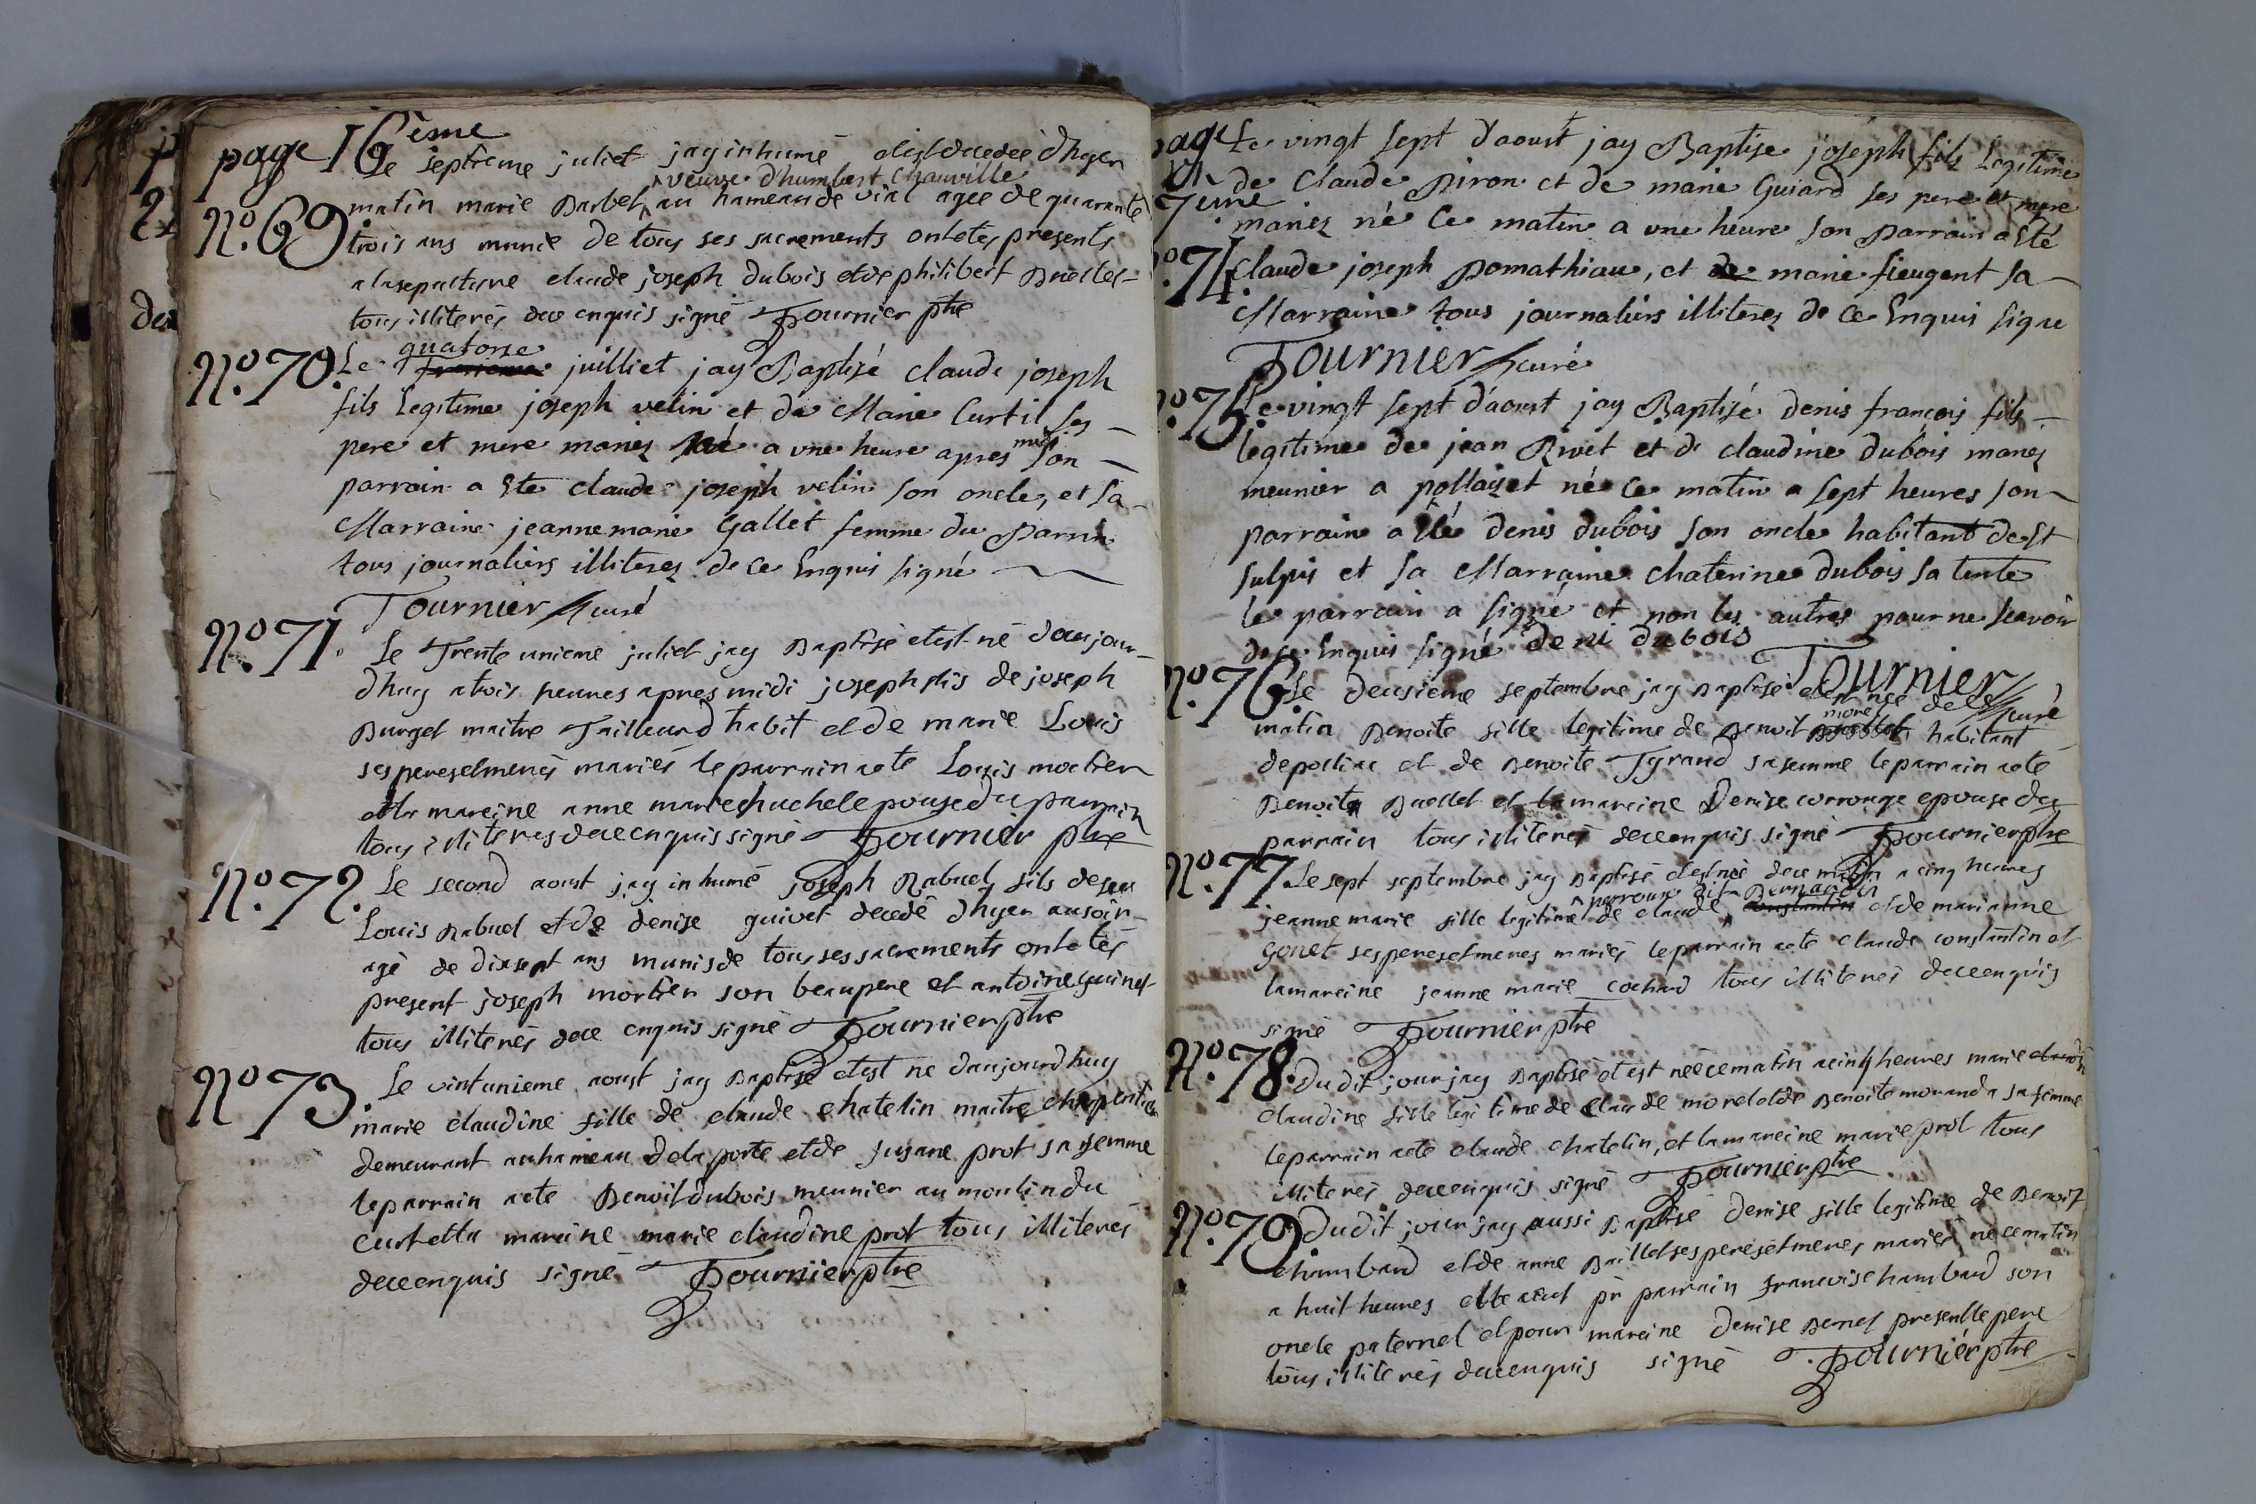 page 16ème
Le septieme juliet jay inhumé et est decedée dhyer
veuve d'humbert Chauville
N.º 69. matin marie Barbet au hameau de vial agee de quarante
trois ans munie de tous ses sacrements ont etes presents
a la sepulture claude joseph dubois et de philibert Buellet
tous illiterés de ce enquis signé Fournier ptre
quatorse
N.º 70. Le juilliet jay Baptisé claude joseph
fils Legitime joseph velin et de Marie Curtil ses
pere et mere mariez né a une heure apres midi son
parrain a Ete claude joseph velin son oncle, et sa
Marraine jeanne marie Gallet femme du Parrin
tous journaliers illiterez de ce Enquis signé
Fournier curé
N.º 71. Le Trente unieme juliet jay Baptisé et est né daujour
dhuy a trois heures apres midi joseph fils de joseph
Burget maitre Tailleur d habit et de marie Louis
ses peres et meres mariés le parrain a ete Louis mortier
et la mareine anne marie huchel epouse du parrain
tous illiteres de ce enquis signé Fournier ptre
N.º 72. Le second aoust jay inhumé joseph Rabuel fils de
Louis Rabuel et de denise guivet decedé dhyer au soir
agé de dixsept ans munis de tous ses sacrements ont etés
present joseph mortier son beaupere et antoine guinet
tous illiterés de ce enquis signé Fournier ptre
N.º 73. Le vint unieme aoust jay Baptisé et est né daujourdhuy
marie claudine fille de claude chatelin maitre charpentier
demeurant au hameau de la porte et de susane prot sa femme
le parrain a ete Benoit dubois meunier au moulin du
curt et la mareine marie claudine prot tous illiterés
de ce enquis signé Fournier ptre
page Le vingt sept d'aoust jay Baptise joseph fils Legitime
7eme de Claude Piron et de marie Guiard ses pere et mere
mariez né ce matin a une heure son parrain a Eté
º.74. Claude joseph Pomathiau, et de marie fieugent sa
Marraine tous journaliers illiterez de ce Enquis signe
Fournier curé
º.75. Le vingt sept d'aoust jay Baptisé denis françois fils
legitime de jean Rivet et de claudine dubois mariez
meunier a pollaizet né ce matin a sept heures son
parrain a Eté denis dubois son oncle habitant de St
sulpis et sa Marraine chaterine dubois sa tente
le parrain a signé et non les autres pour ne scavoir
de ce Enquis signé deni dubois
Fournier curé
nº.76. Le deusieme septembre jay Baptisé et est née de ce
morel
matin Benoite fille legitime de Benoit habitant
de poeliac et de Benoite Tgrand sa femme le parrain a ete
Benoit Buellet et la mareine Denise corronge epouse du
parrain tous illiterés de ce enquis signé Fournier ptre
Nº.77. Le sept septembre jay Baptisé et est née de ce matin a cinq heures
perroux dit Bernardin
jeanne marie fille legitime de claude constantin et de marianne
gonet ses peres et meres mariés le parrain a ete claude constantin et
la mareine jeanne marie cochard tous illiterés de ce enquis
signé Fournier ptre
Nº.78. Du dit jour jay Baptisé et est née ce matin a cinq heures marie
claudine fille legitime de claude morel et de Benoite morand a sa femme
le parrain a ete claude chatelin, et la mareine marie prot tous
illiterés de ce enquis signé Fournier ptre
Nº.79. Du dit jour jay aussi Baptisé denise fille legitime de Benoit
chambard et de anne Baillet ses peres et meres mariés née ce matin
a huit heures elle a eut pr parrain francois chambard son
oncle paternel et pour mareine denise Benet present le pere
tous illiterés de ce enquis signé Fournier ptre